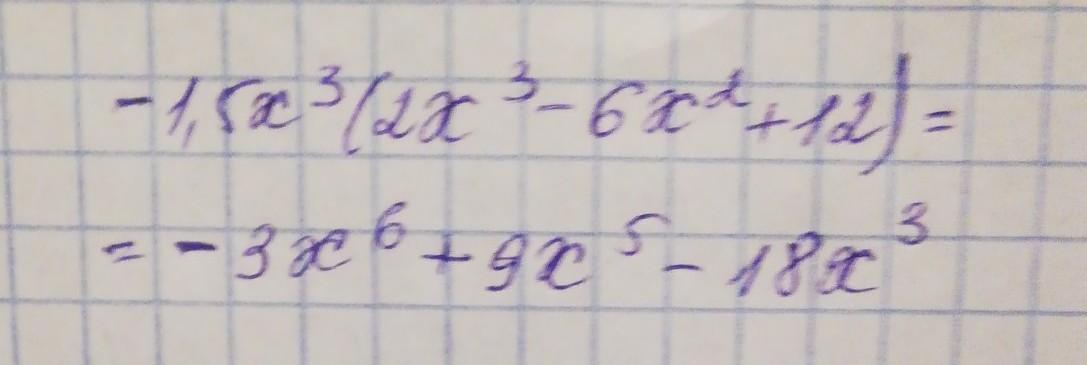 -1,5x³(2x³-6x²+12)=
=-3x⁶+9x⁵-18x³